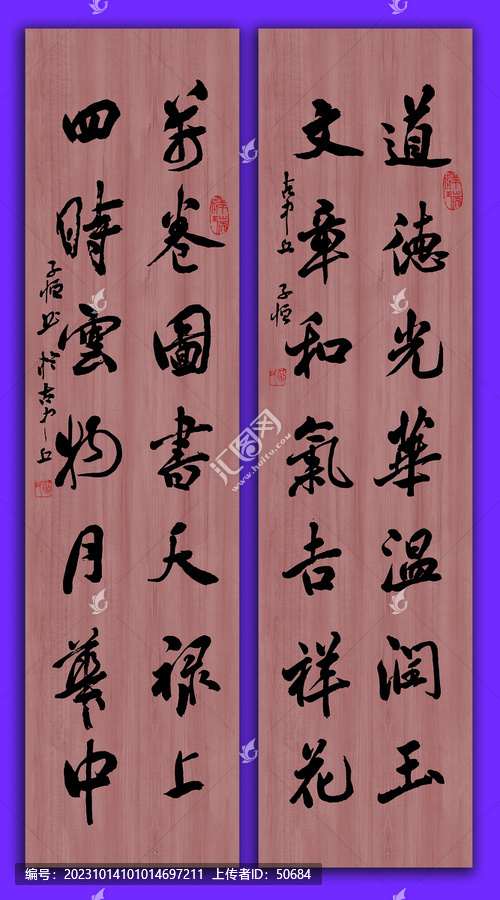 道德光華温潤玉
文章和氣吉祥花
子恒
萬卷圖書天禄上
四時雲物月華中
子恒書於古中丘
汇图网
www.huitu.com
编号:20231014101014697211 上传者ID:50684